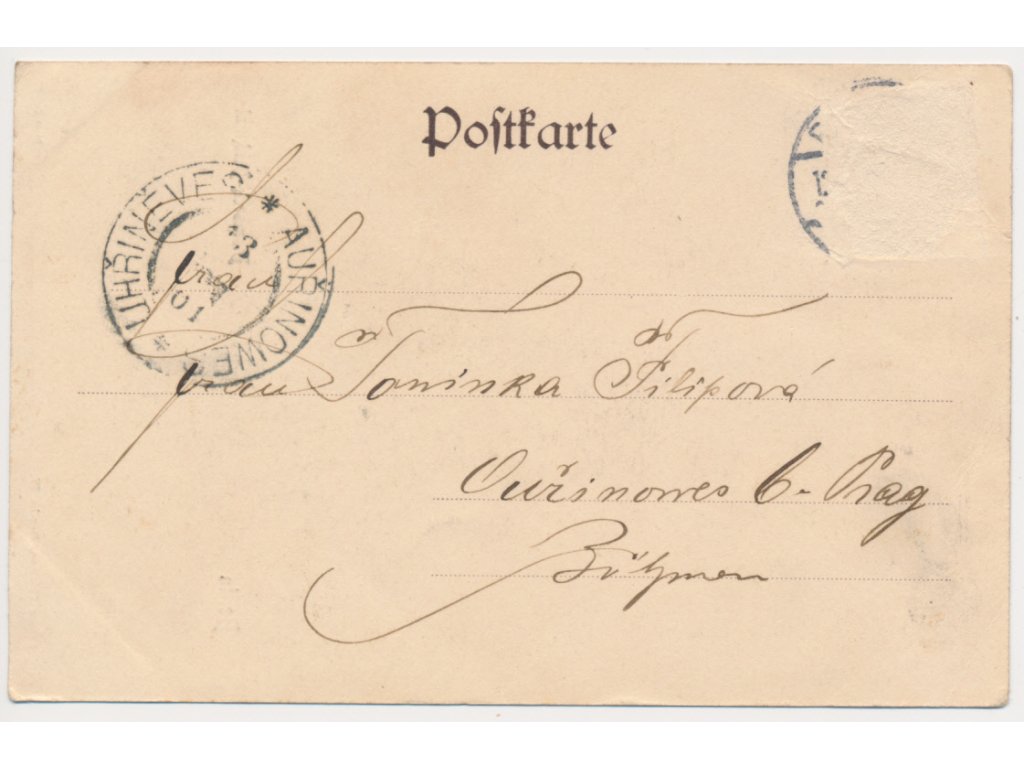 Postkarte
UHŘINĚVES * AUŘINOWES *
13
01
Frau
Frau Toninka Filipová
Ouřinowes b. Prag
Böhmen